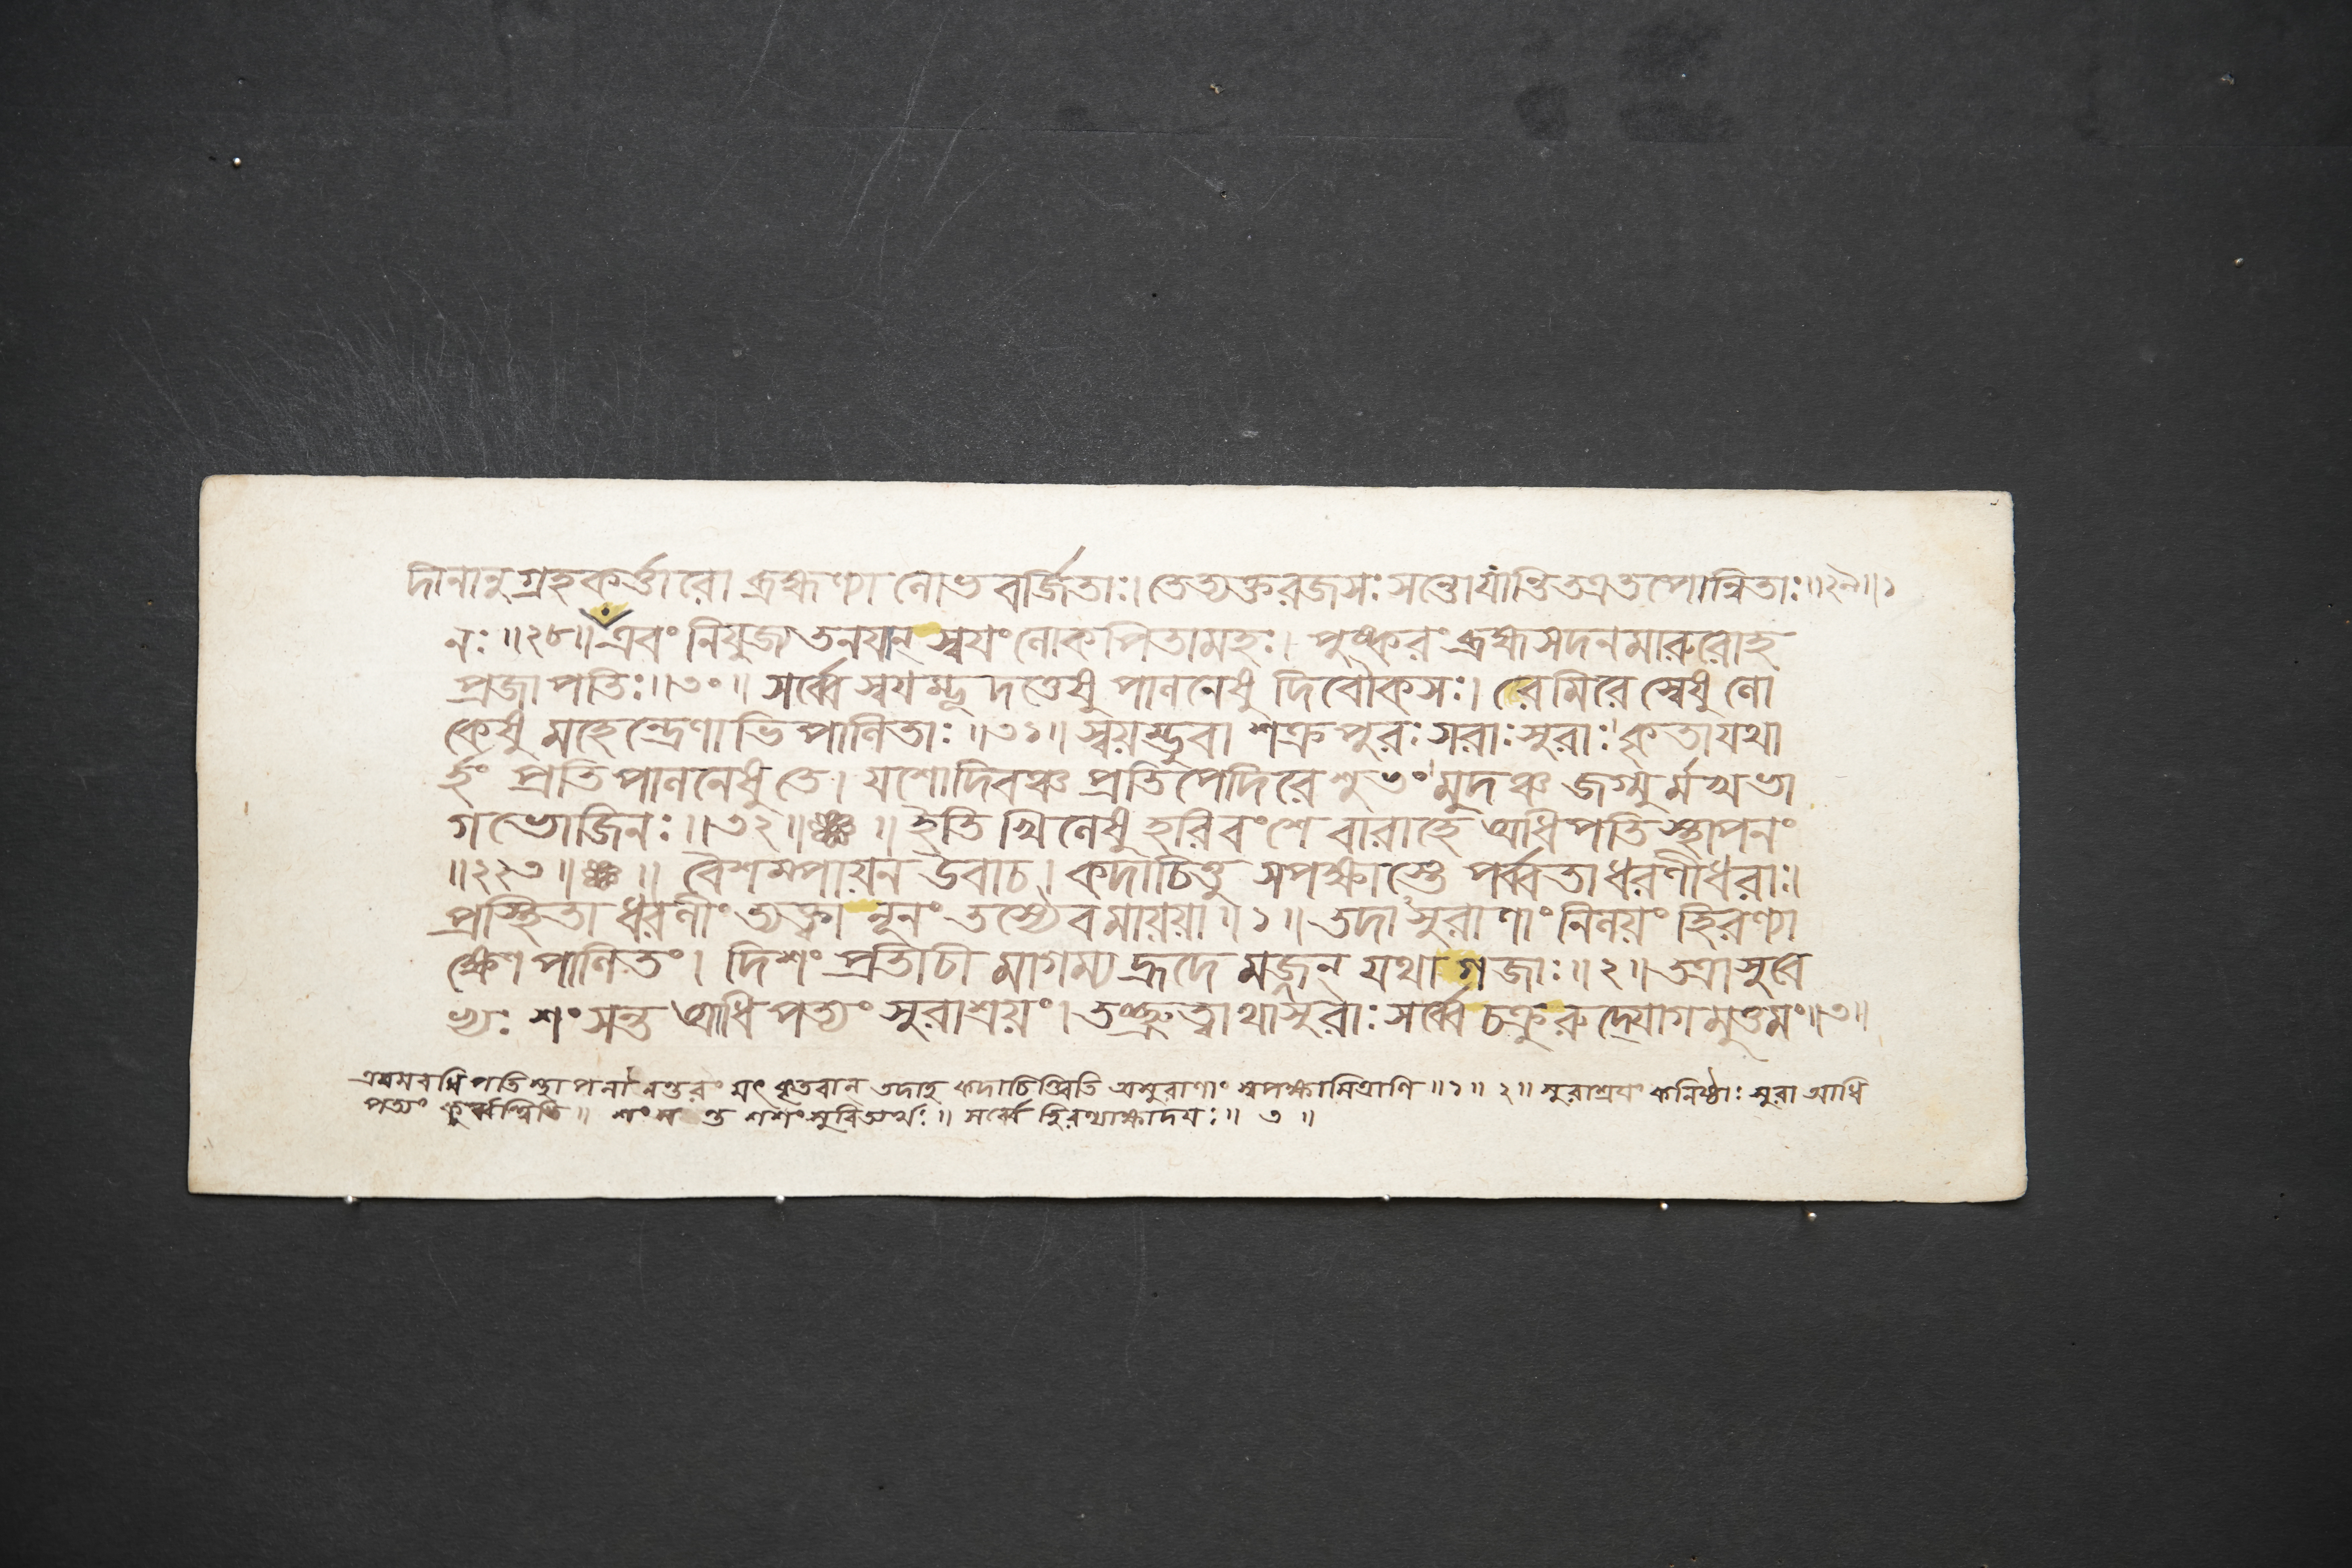 দীনানুগ্রহকর্ত্তারো ব্রহ্মণ্যা লোভবর্জিতাঃ। তেত্যক্তরজসঃ সন্তো তপোন্বিতাঃ॥২৯॥১
নঃ॥২৮॥ এবং নিযুজ্য তনযান্ স্বযং লোকপিতামহঃ। পুষ্করং ব্রহ্মসদনমারুরোহ
প্রজাপতিঃ॥৩০॥ সর্ব্বে স্বযম্ভূদত্তেষু পালনেষু দিবৌকসঃ। রেমিরে স্বেষু লো
কেষু মহেন্দ্রেণাভিপালিতাঃ॥৩১॥ স্বয়ম্ভুবা শক্রপুরঃসরাঃ সুরাঃ কৃতা যথা
র্হং প্রতিপালনেষু তে। যশো দিবঞ্চ প্রতিপেদিরে শুভং মুদঞ্চ জগ্মুর্মখভা
গভোজিনঃ॥৩২॥ ॥ ইতি খিলেষু হরিবংশে বারাহে অধিপতিস্থাপনং
॥২২৩॥ ॥ বৈশম্পায়ন উবাচ। কদাচিত্তু সপক্ষাস্তে পর্ব্বতা ধরণীধরাঃ।
প্রস্থিতা ধরণীং ত্যক্ত্বা নূনং তস্যৈব মায়য়া॥১॥ তদাসুরাণাং নিলয়ং হিরণ্যা
ক্ষেণ পালিতং। দিশং প্রতীচীমাগম্য হ্রদে মজ্জন্ যথা গজাঃ॥২॥ তত্রাসুরে
ভ্যঃ শংসন্ত আধিপত্যং সুরাশ্রয়ং। তচ্ছ্রুত্বাথাসুরাঃ সর্ব্বে চক্রুরুদ্যোগমুত্তমং॥৩॥
এবমবধিপতিস্থাপনানন্তরং যৎ কৃতবান্ তদাহ কদাচিত্ত্বিতি অসুরাণাং স্বপক্ষামিত্রাণি॥১॥ ২॥ সুরাশ্রযং কনিষ্ঠাঃ সুরা আধি
পত্যং কুর্ব্বন্ত্বিতি॥ শংসন্ত শশংসুরিত্যর্থঃ॥ সর্ব্বে হিরণ্যাক্ষাদযঃ॥ ৩ ॥